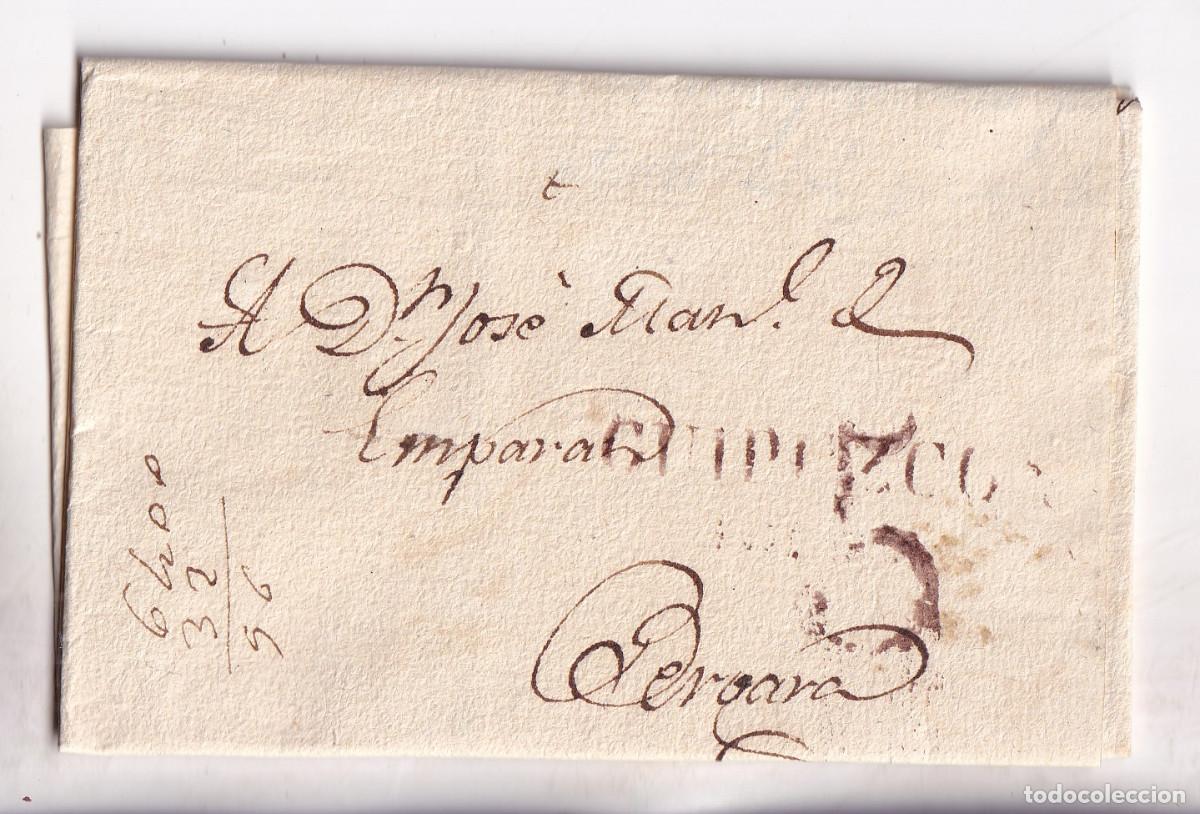 A Dn. Josè Manl. de
Emparan
GUIPUZCOA
5
Vergara
6400
32
56
todocoleccion